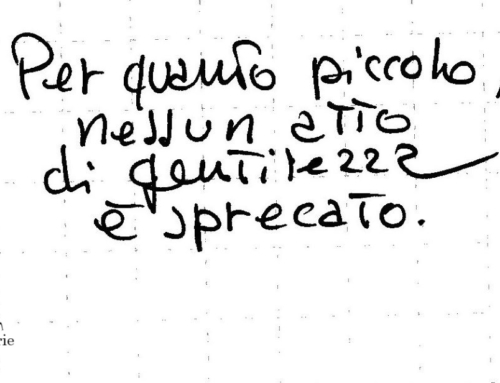 Per quanto piccolo,
nessun atto
di gentilezza
è sprecato.
rie